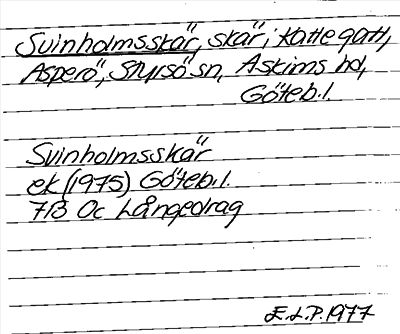 Svinholmsskär, skär i Kattegatt,
Asperö, Styrsö sn, Askims hd,
Göteb.l.
Svinholmsskär
ek (1975) Göteb.l.
7B 0c Långedrag
E.L.P. 1977